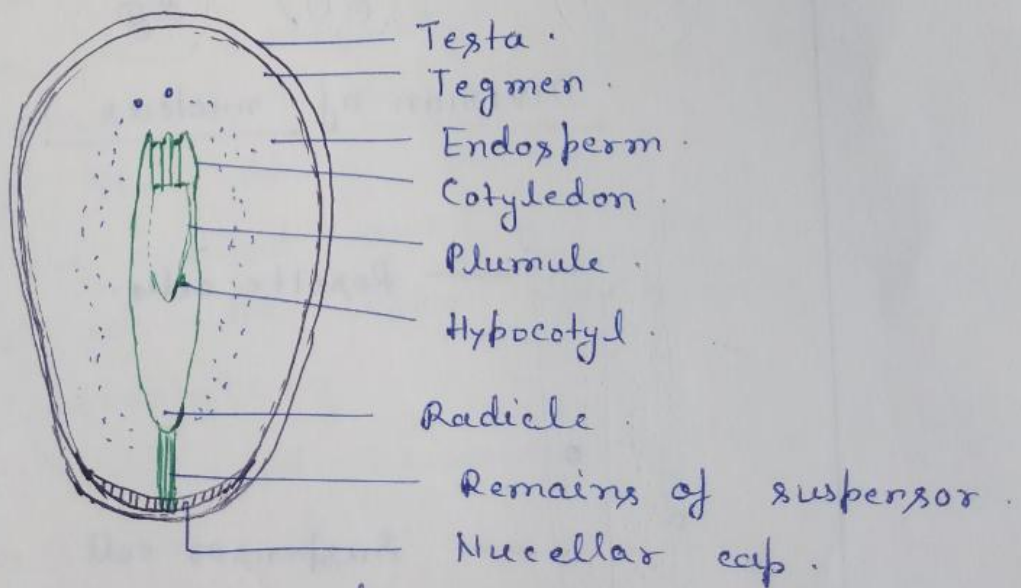 Testa.
Tegmen.
Endosperm.
Cotyledon.
Plumule.
Hypocotyl.
Radicle.
Remains of suspensor.
Nucellar cap.